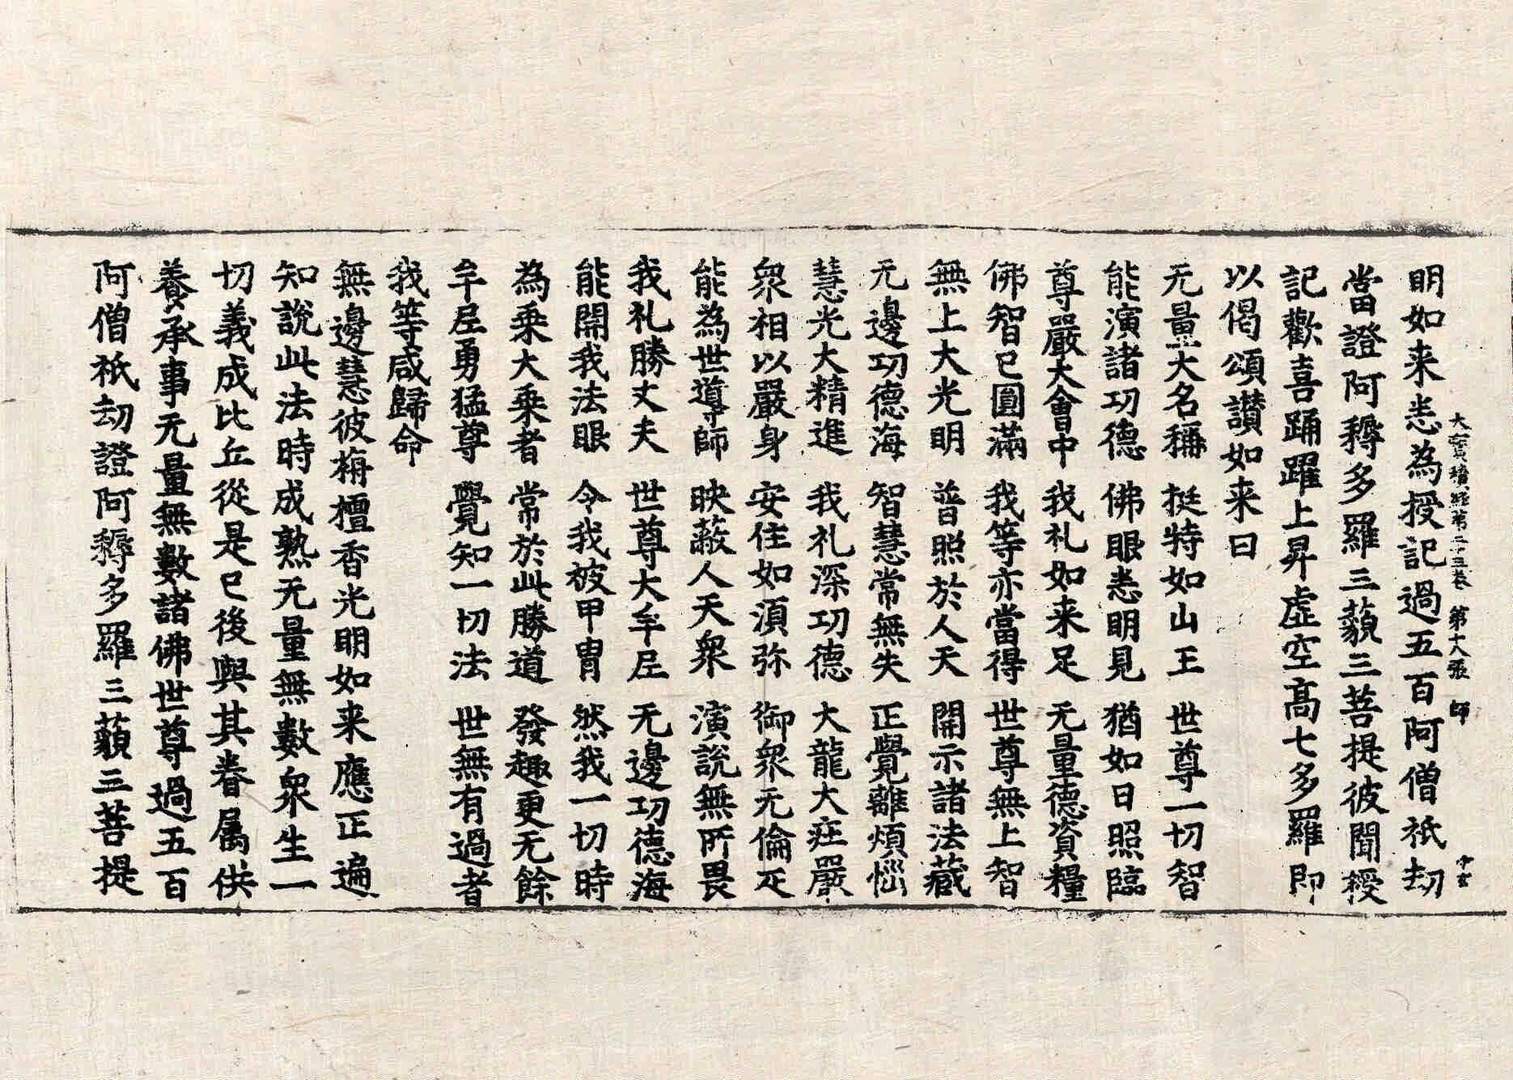 明如来悉為授記過五百阿僧祇劫
大寶積經第二十三卷 第十八張 師
當證阿耨多羅三藐三菩提彼聞授
記歡喜踊躍上昇虛空高七多羅即
以偈頌讃如来曰
无量大名稱 挺特如山王 世尊一切智
能演諸功德 佛眼悉明見 猶如日照臨
尊嚴大會中 我礼如来足 无量德資糧
佛智已圓滿 我等亦當得 世尊無上智
無上大光明 普照於人天 開示諸法藏
无邊功德海 智慧常無失 正覺離煩惱
慧光大精進 我礼深功德 大龍大莊嚴
衆相以嚴身 安住如須弥 御衆无倫疋
能為世導師 映蔽人天衆 演說無所畏
我礼勝丈夫 世尊大牟尼 无邊功德海
能開我法眼 令我被甲冑 然我一切時
為乗大乗者 常於此勝道 發趣更无餘
牟尼勇猛尊 覺知一切法 世無有過者
我等咸歸命
無邊慧彼栴檀香光明如来應正遍
知說此法時成熟无量無數衆生一
切義成比丘從是已後與其眷属供
養承事无量無數諸佛世尊過五百
阿僧祇劫證阿耨多羅三藐三菩提